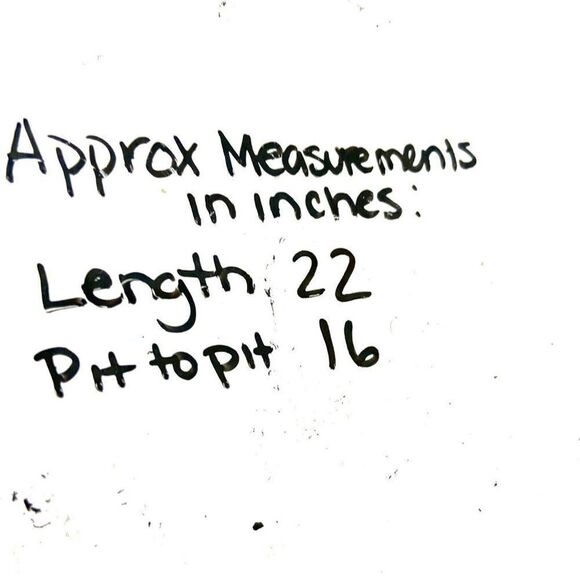 Approx Measurements
in inches:
Length 22
Pit to pit 16